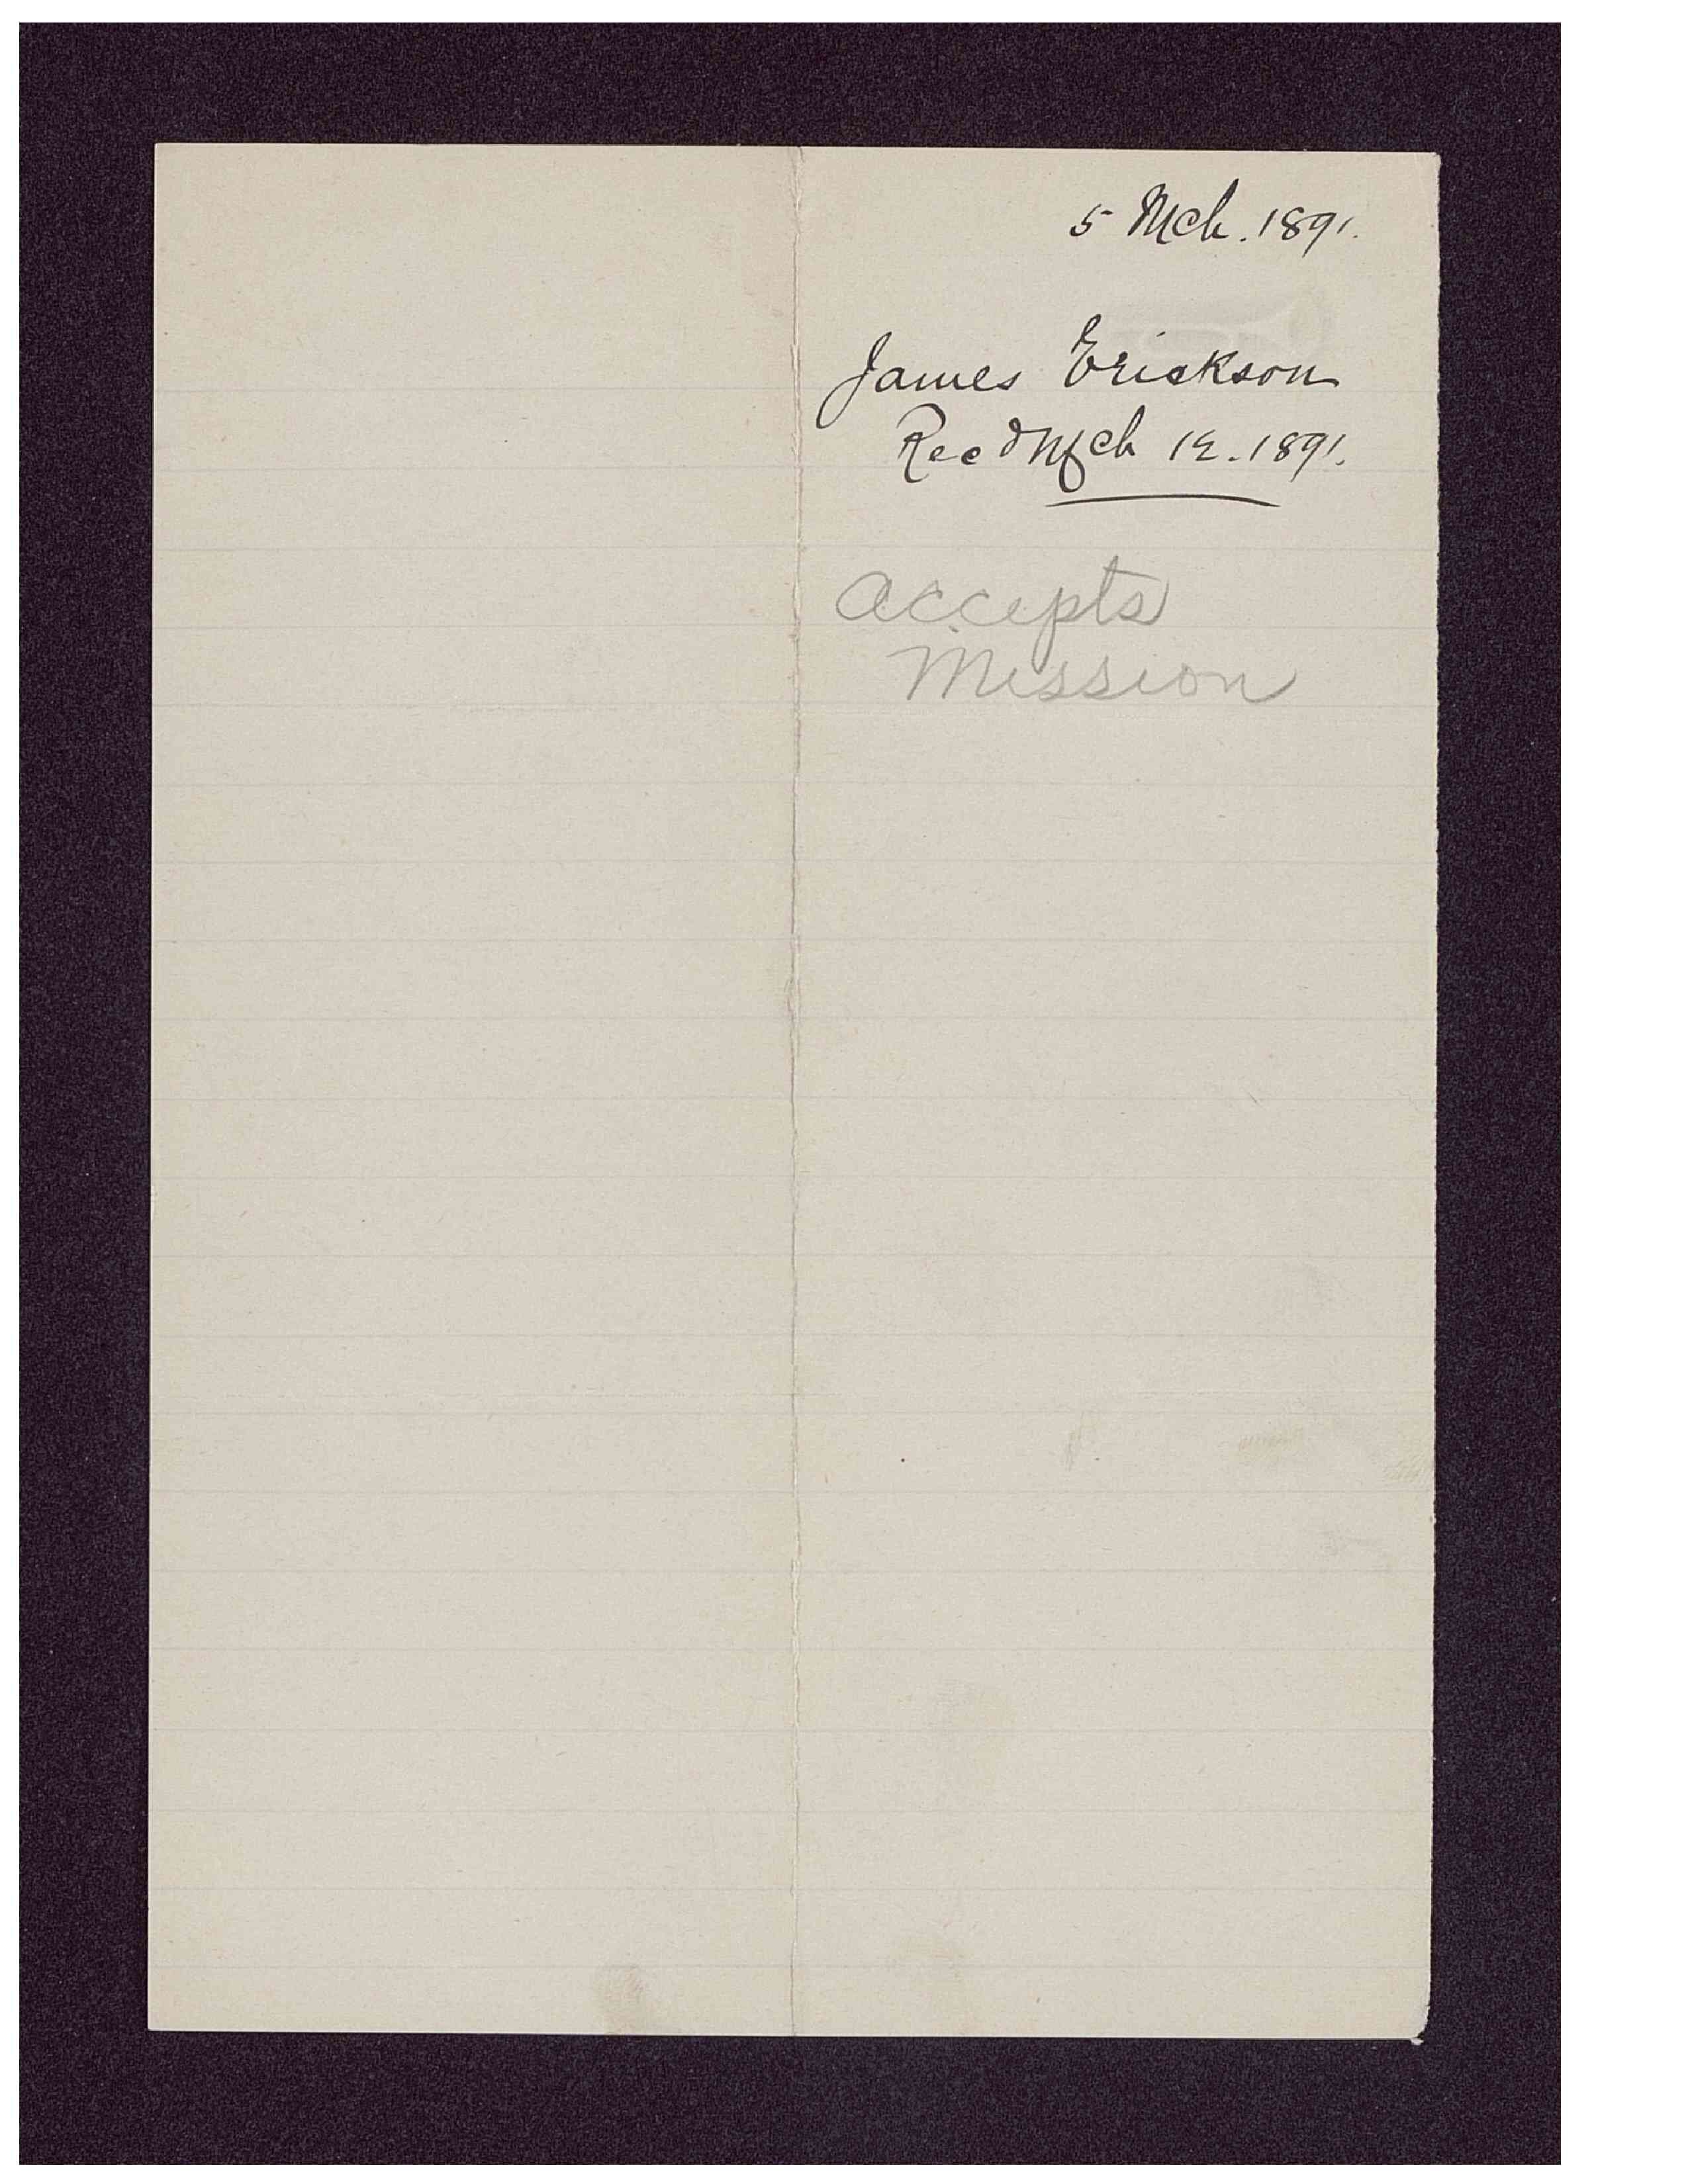 5 Mch. 1891.
James Erickson
Recd Mch 12. 1891.
Accepts
Mission